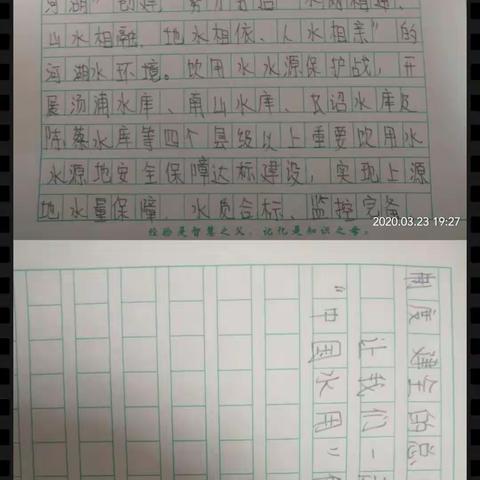 河湖”创建，努力打造“水城相通、
山水相融、地水相依、人水相亲”的
河湖水环境。饮用水水源保护战，开
展汤浦水库、南山水库、长诏水库及
陈蔡水库等四个县级以上重要饮用水
水源地安全保障达标建设，实现上源
地水量保障、水质合标、监控完备
经验是智慧之父，记忆是知识之母。
2020.03.23 19:27
制度健全的总
让我们一
“中国水周”